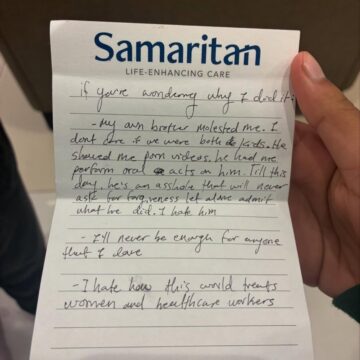 Samaritan
LIFE-ENHANCING CARE
if you're wondering why I did it:
- My own brother molested me. I
dont care if we were both kids. He
showed me porn videos, he had me
perform oral acts on him. Till this
day, he's an asshole that will never
ask for forgiveness let alone admit
what he did. I hate him
- I'll never be enough for anyone
that I love
- I hate how this world treats
women and healthcare workers